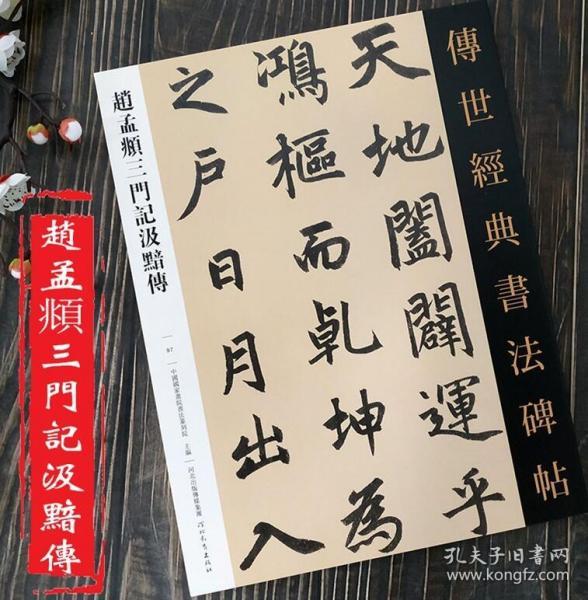 傳世經典書法碑帖
天地闔闢運乎
鴻樞而乹坤為
之户日月出入
趙孟頫三門記汲黯傳
87
中國國家畫院書法篆刻院 主編
河北出版傳媒集團
河北教育出版社
趙孟頫三門記汲黯傳
孔夫子旧书网
www.kongfz.com